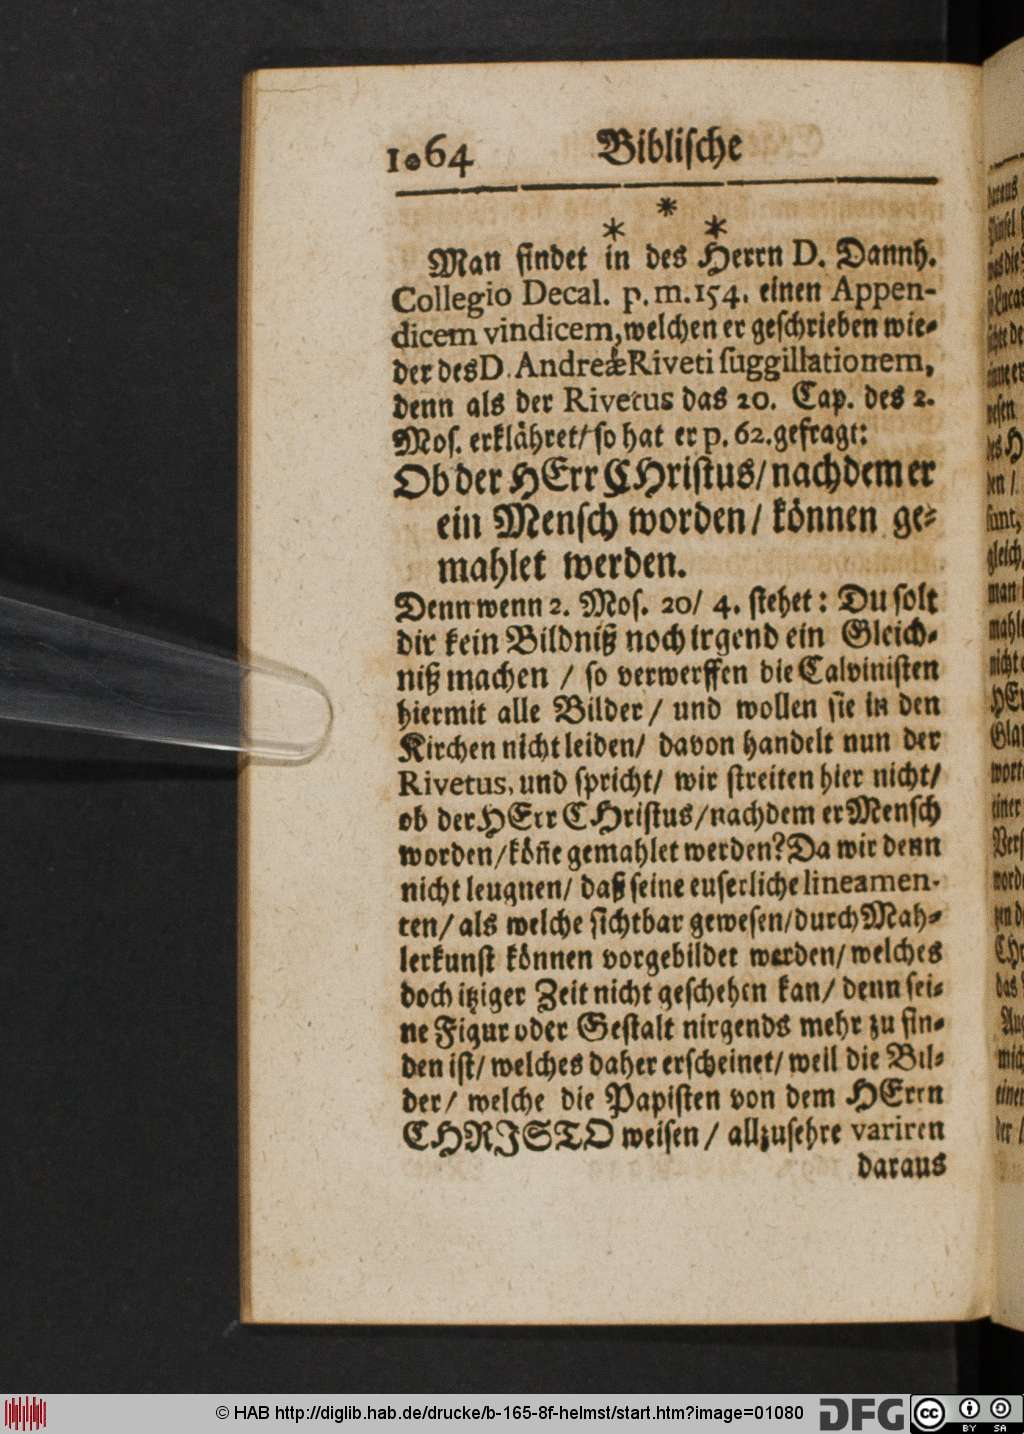 1064 Biblische
* * *
Man findet in des Herrn D. Dannh.
Collegio Decal. p. m. 154. einen Appen-
dicem vindicem, welchen er geschrieben wie-
der des D. Andreæ Riveti suggillationem,
denn als der Rivetus das 20. Cap. des 2.
Mos. erklähret/ so hat er p. 62. gefragt:
Ob der HErr CHristus/ nachdem er
ein Mensch worden/ können ge-
mahlet werden.
Denn wenn 2. Mos. 20/ 4. stehet: Du solt
dir kein Bildniß noch irgend ein Gleich-
niß machen / so verwerffen die Calvinisten
hiermit alle Bilder/ und wollen sie in den
Kirchen nicht leiden/ davon handelt nun der
Rivetus, und spricht/ wir streiten hier nicht/
ob der HErr CHristus/ nachdem er Mensch
worden/ köñe gemahlet werden? Da wir denn
nicht leugnen/ daß seine euserliche lineamen-
ten/ als welche sichtbar gewesen/ durch Mah-
lerkunst können vorgebildet werden/ welches
doch itziger Zeit nicht geschehen kan/ denn sei-
ne Figur oder Gestalt nirgends mehr zu fin-
den ist/ welches daher erscheinet/ weil die Bil-
der/ welche die Papisten von dem HErrn
CHRISTO weisen / allzusehre variren
daraus
© HAB http://diglib.hab.de/drucke/b-165-8f-helmst/start.htm?image=01080
DFG
cc BY SA